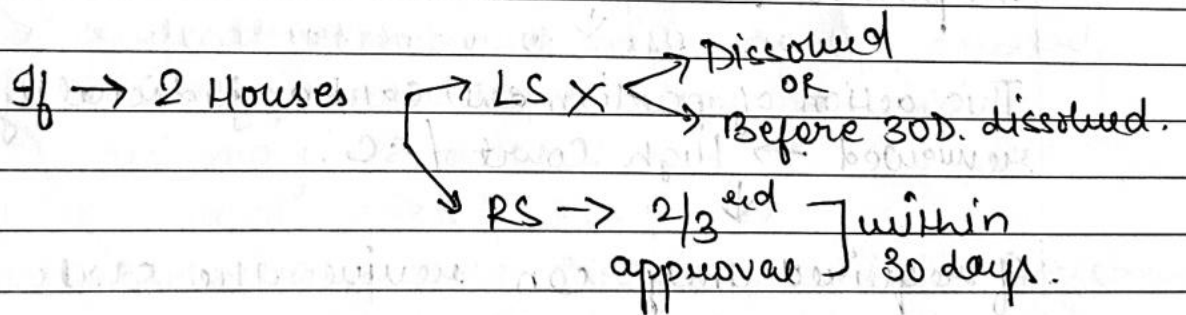 If → 2 Houses → LS X → Dissolved
OR
→ Before 30D. dissolved.
→ RS → 2/3rd approval ] within 30 days.